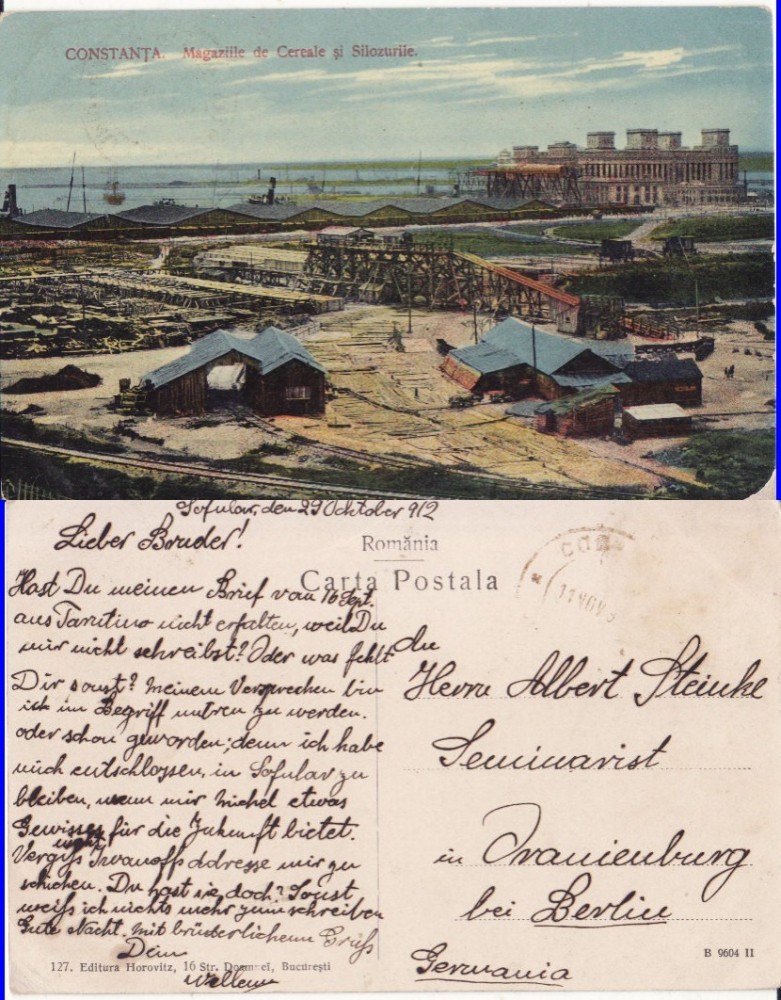 CONSTANȚA. Magaziile de Cereale și Silozurile.
Sofular, den 29 Oktober 912
Lieber Bruder!
Hast Du meinen Brief vom 16 Sept.
aus Tarutino nicht erfalten, weil Du
mir nicht schreibst? Oder was fehlt
Dir sonst? Meinem Versprechen bin
ich im Begriff untreu zu werden.
oder schon geworden; denn ich habe
mich entschlossen, in Sofular zu
bleiben, wenn mir Michel etwas
Gewisses für die Zukunft bietet.
Vergiss nicht! Iwanoffs Adresse mir zu
schicken. Du hast sie doch? Sonst
weiss ich nichts mehr zum schreiben
Gute Nacht. Mit brüderlichem Gruss
Dein
România
Carta Postala
An
Herrn Albert Steinke
Seminarist
in Oranienburg
bei Berlin
Germania
127. Editura Horovitz, 16 Str. Doamnei, București
B 9604 II